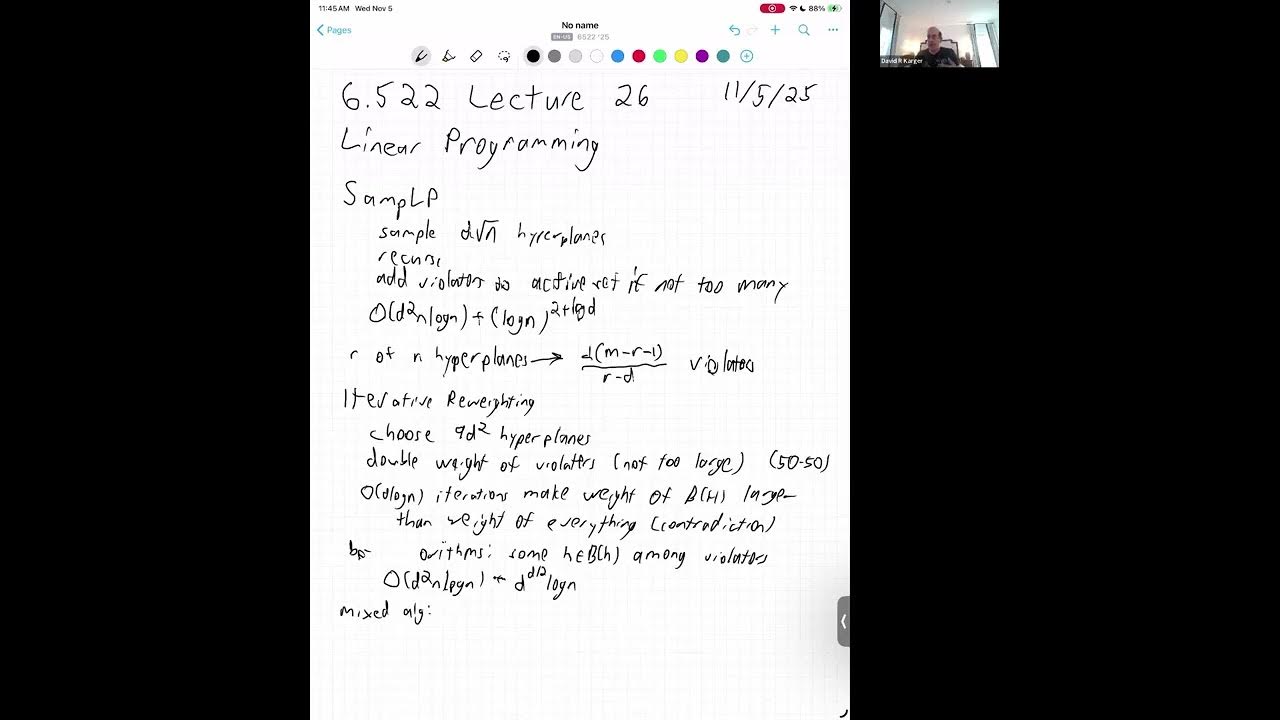 11:45 AM Wed Nov 5
88%
Pages
No name
EN-US 6522 f25
David R Karger
6.522 Lecture 26 11/5/25
Linear Programming
SampLP
sample d√n hyperplanes
recurse
add violators to active set if not too many
O(d²n log n) + (log n)^{2+log d}
r of n hyperplanes → d(m-r-1)/(r-d) violators
Iterative Reweighting
choose 9d² hyperplanes
double weight of violators (not too large) (50-50)
O(d log n) iterations make weight of B(H) larger
than weight of everything (contradiction)
orithms: some h∈B(h) among violators
O(d²n log n) + d^{d/2} log n
mixed alg: